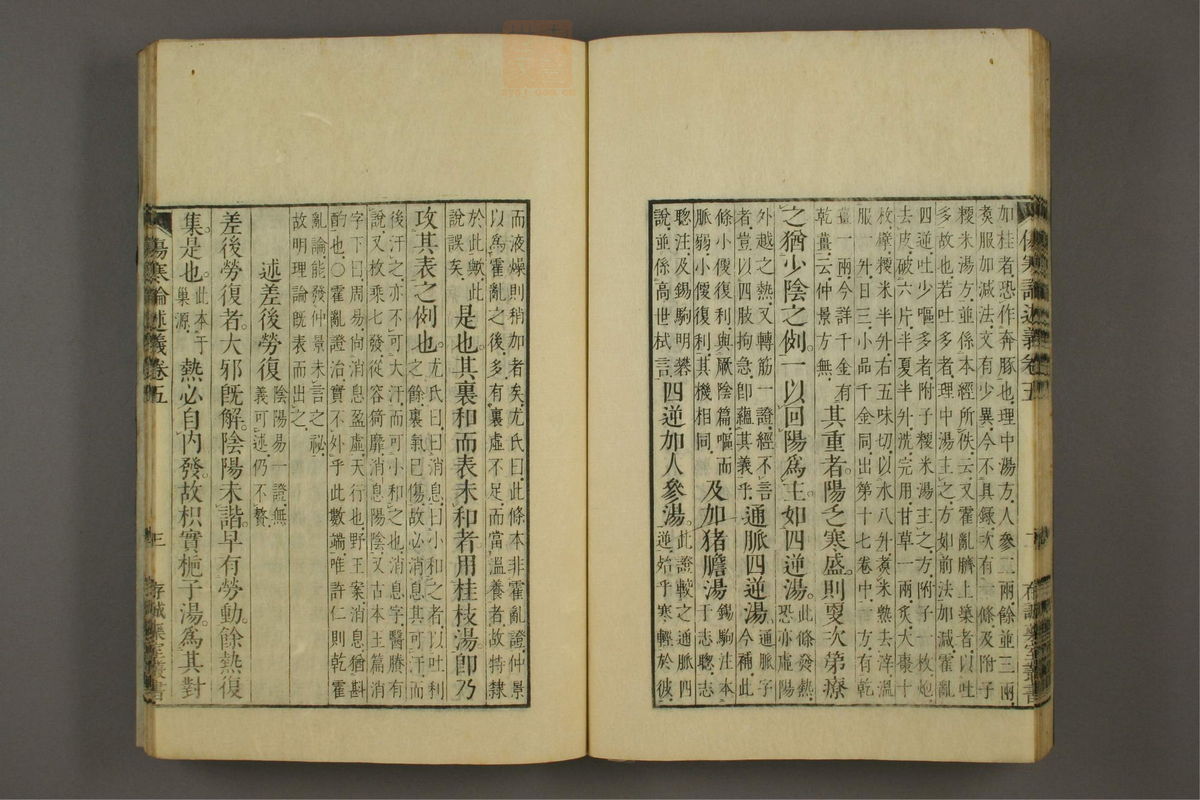 加桂者恐作奔豚也理中湯方人參三兩餘並三兩
煑服加減法文有少異今不具錄次有一條及附子
糉米湯方並係本經所佚云又霍亂臍上築者以吐
多故也若吐多者理中湯主之方如前法加減霍亂
四逆吐少嘔多者附子糉米湯主之方附子一枚炮
去皮破六片半夏半升洗完用甘草一兩炙大棗十
枚擘糉米半升右五味切以水八升煑米熟去滓溫
服一升日三小品千金同出第十七卷中一方有乾
薑一兩今詳千金有
乾薑云仲景方無
其重者陽乏寒盛則更次第療
之猶少陰之例一以回陽爲主如四逆湯
此條發熱
恐亦虛陽
外越之熱又轉筋一證經不言
者豈以四肢拘急卽蘊其義乎
通脈四逆湯
通脈字
今補此
條小便復利與厥陰篇嘔而
脈弱小便復利其機相同
及加猪膽湯
錫駒注本
于志聰志
聰注及錫駒明攀
說並係高世栻言
四逆加人參湯
此證較之通脈四
逆始乎寒輕於彼
而液燥則稍加者矣尤氏曰此條本非霍亂證仲景
以爲霍亂之後多有裏虛不足而當溫養者故特隸
於此歟此
說誤矣
是也其裏和而表未和者用桂枝湯卽乃
攻其表之例也
尤氏曰曰消息曰小和之者以吐利
之餘裏氣已傷故必消息其可汗而
後汗之亦不可大汗而可小和之也消息字醫賸有
說又枚乘七發從容猗靡消息陽陰又古本玉篇消
字下曰周易尙消息盈虛天行也野王案消息猶斟
酌也○霍亂證治實不外乎此數端唯許仁則乾霍
亂論能發仲景未言之祕
故明理論旣表而出之
述差後勞復
陰陽易一證無
義可述仍不贅
差後勞復者大邪旣解陰陽未諧早有勞動餘熱復
集是也
此本于
巢源
熱必自內發故枳實梔子湯爲其對
傷寒論述義卷五
三
存誠藥室叢書